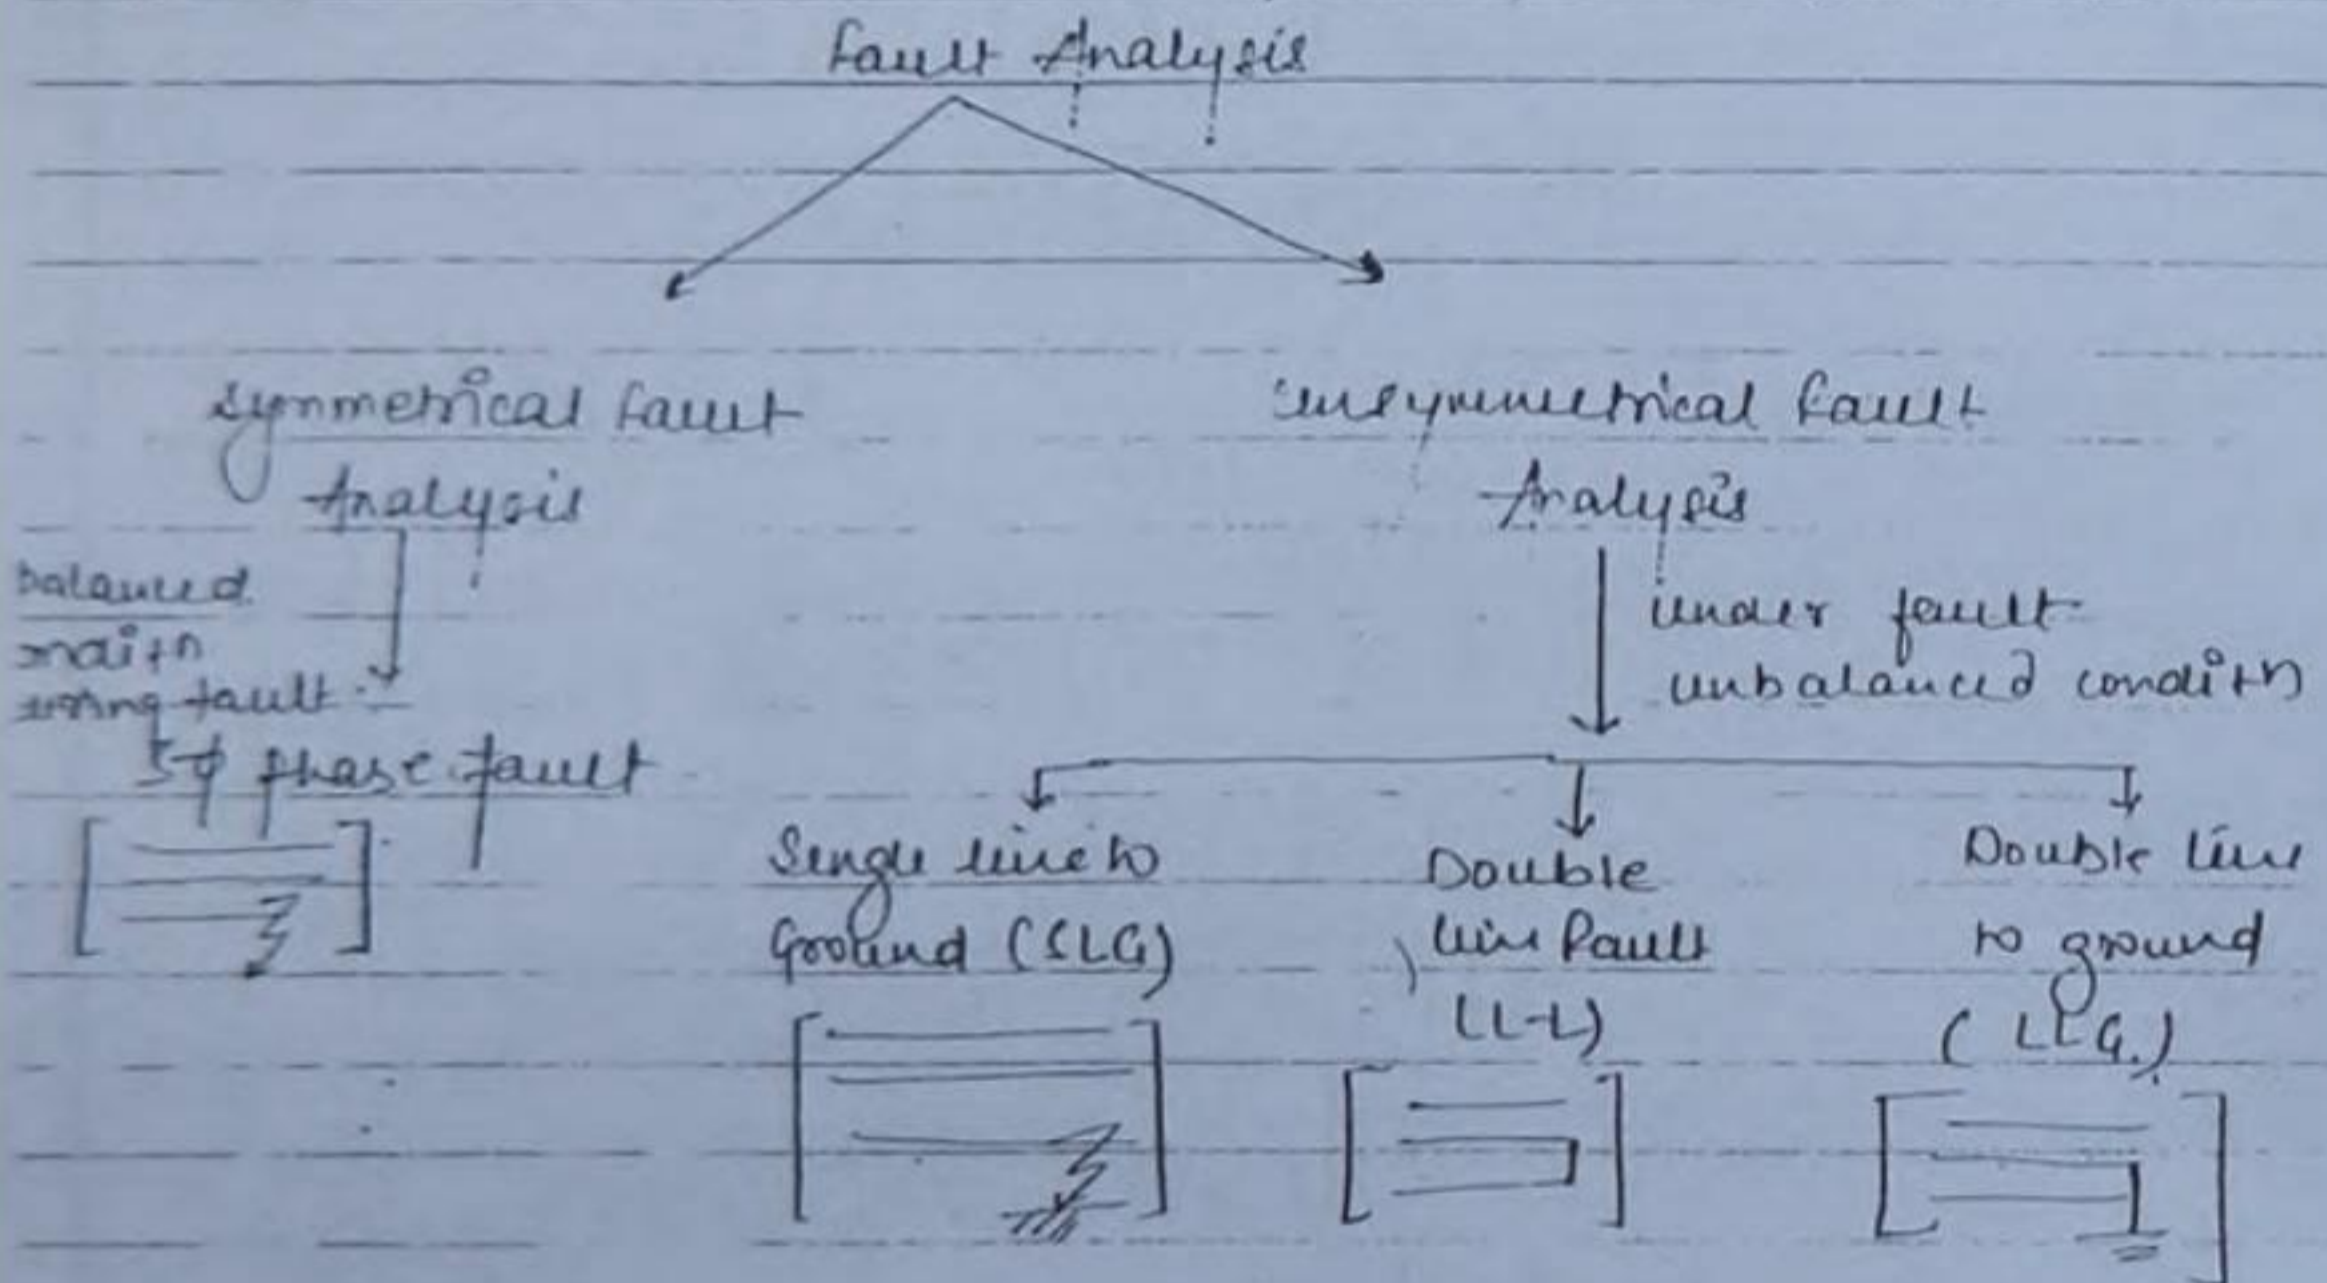 Fault Analysis
Symmetrical fault
Analysis
balanced
fault
3-φ phase fault
unsymmetrical fault
Analysis
under fault
unbalanced conditn
Single line to
Ground (SLG)
Double
line fault
(L-L)
Double line
to ground
(LLG.)